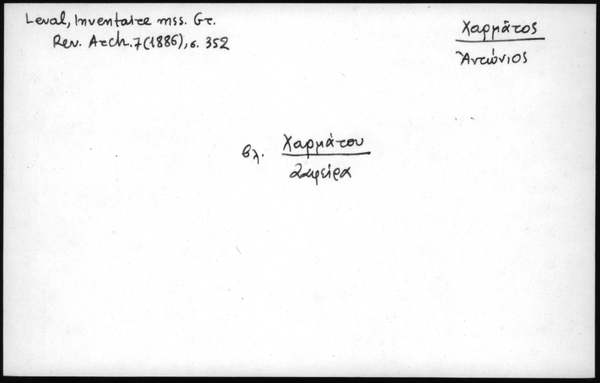 Leval, Inventaire mss. Gr.
Rev. Arch. 7 (1886), σ. 352
Χαρμάτος
Ἀντώνιος
βλ. Χαρμάτου
Ζαφείρα